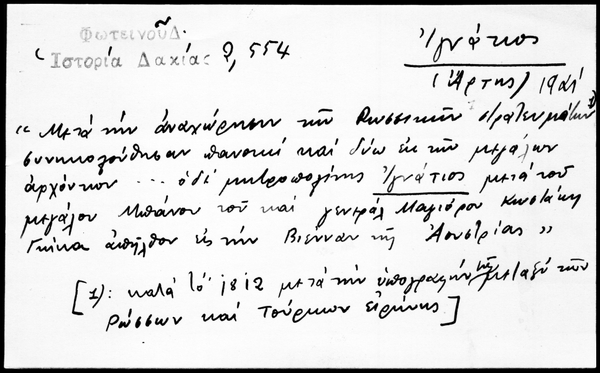 Φωτεινοῦ Δ.
Ἱστορία Δακίας β, 554
Ἰγνάτιος
(Ἄρτης)
"Μετὰ τὴν ἀναχώρησιν τῶν Ρωσσικῶν στρατευμάτων 1)
συνηκολούθησαν πανοικὶ καὶ δύω ἐκ τῶν μεγάλων
ἀρχόντων ... ὁ δὲ μητροπολίτης Ἰγνάτιος μετὰ τοῦ
μεγάλου Μπάνου τοῦ καὶ γενεράλ Μαγιόρου Κωστάκη
Γκίκα ἀπῆλθον εἰς τὴν Βιένναν τῆς Ἀουστρίας"
[1): κατὰ τὸ 1812 μετὰ τὴν ὑπογραφὴν τῆς μεταξὺ τῶν
Ρώσσων καὶ Τούρκων εἰρήνης]